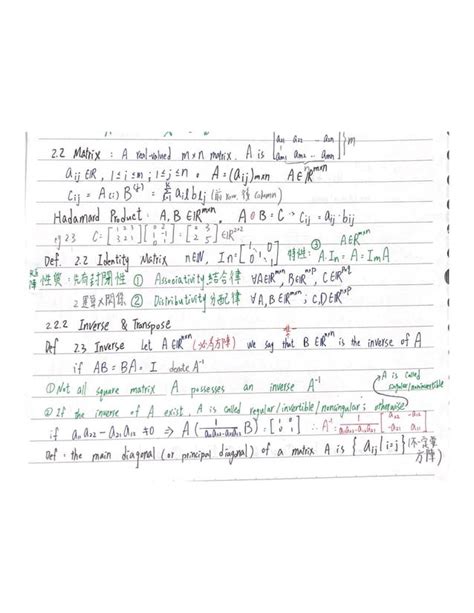 2.2 Matrix : A real-valued m×n matrix A is [a₂₁ a₂₂ ... a₂ₙ
aₘ₁ aₘ₂ ... aₘₙ] }m
aᵢⱼ∈ℝ, 1≤i≤m, 1≤j≤n。A=(aᵢⱼ)m×n A∈ℝᵐˣⁿ
Hadamard Product : A, B∈ℝᵐˣⁿ, A⊙B=C → Cᵢⱼ=aᵢⱼ·bᵢⱼ
eg 2.3 C=[1 2 3
3 2 1]
Def. 2.2 Identity Matrix n∈ℕ, Iₙ= 特性: ③ A∈ℝᵐˣⁿ
A·Iₙ=A=IₘA
性質:先有封閉性 ① Associativity 結合律 ∀A∈ℝᵐˣⁿ, B∈ℝⁿˣᵖ, C∈ℝᵖˣᑫ
② Distributivity 分配律 ∀A,B∈ℝᵐˣⁿ; C,D∈ℝⁿˣᵖ
2.2.2 Inverse & Transpose
Def 2.3 Inverse Let A∈ℝⁿˣⁿ (必為方陣) we say that B∈ℝⁿˣⁿ is the inverse of A
if AB=BA=I denote A⁻¹
① Not all square matrix A possesses an inverse A⁻¹
A is called
singular/noninvertible
② If the inverse of A exist, A is called regular/invertible/nonsingular; otherwise
if a₁₁a₂₂-a₂₁a₁₂≠0 ⇒ A(1/(a₁₁a₂₂-a₁₂a₂₁) B)=[1 0
0 1] ∴A⁻¹=1/(a₁₁a₂₂-a₁₂a₂₁) [a₂₂ -a₁₂
-a₂₁ a₁₁]
Def. the main diagonal (or principal diagonal) of a matrix A is {aᵢⱼ|i=j} (不一定單
方陣)